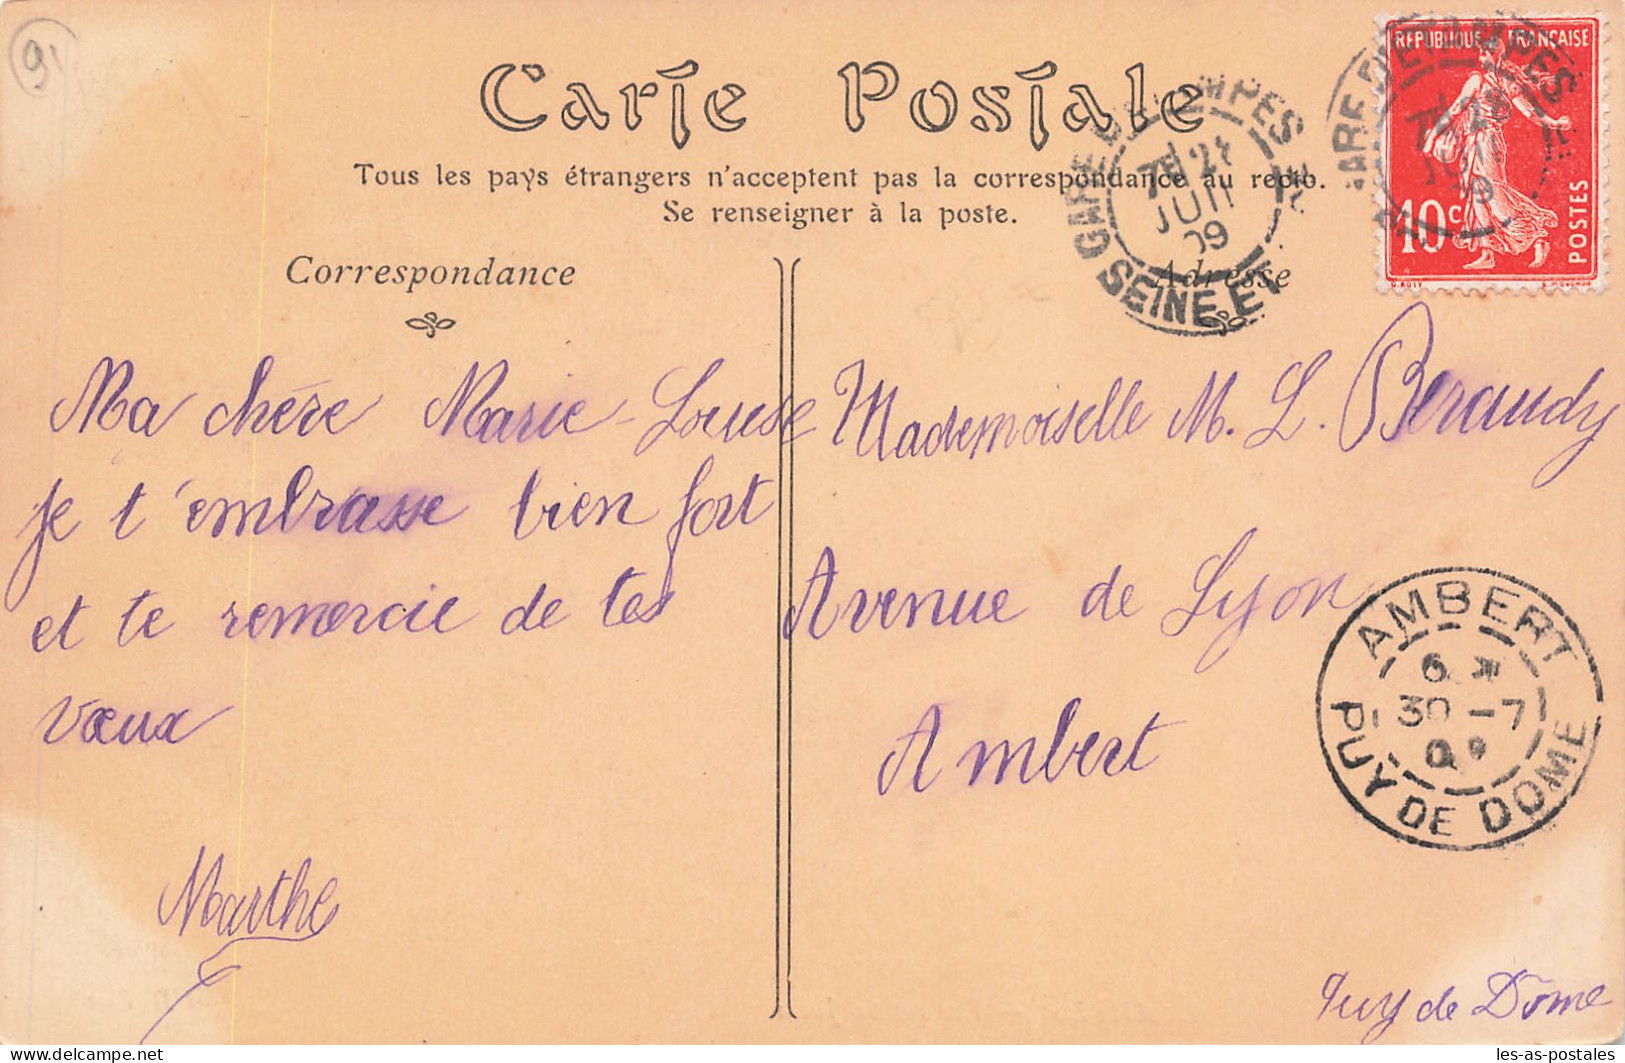 Carte Postale
Tous les pays étrangers n'acceptent pas la correspondance au recto.
Se renseigner à la poste.
Correspondance
Adresse
Ma chère Marie-Louise
je t'embrasse bien fort
et te remercie de tes
vœux
Marthe
Mademoiselle M. L. Beraudy
Avenue de Lyon
Ambert
Puy de Dôme
REPUBLIQUE FRANÇAISE
10c
POSTES
GARE D'ETAMPES
SEINE ET
09
GARE D'ETAMPES
09
AMBERT
30 -7
PUY DE DOME
les-as-postales
www.delcampe.net